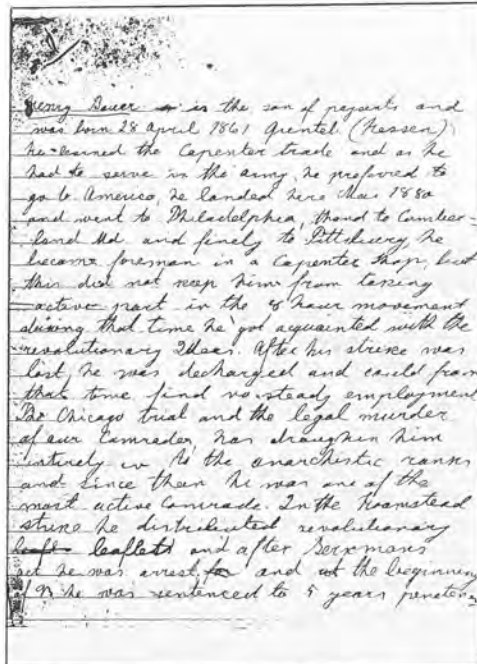 Henry Bauer is the son of pesents and
was born 28 April 1861 (Hessen)
he learned the Capenter trade and as he
had to serve in the army, he preferred to
go to America, he landed here Mai 1880
and went to Philadelphia, thand to Cumber-
land Md. and finely to Pittsburg, he
became foreman in a Capenter shop, but
this did not keep him from taking
active part in the 8 hour movement
during that time he got acquainted with the
revolutionary Ideas. After his strike was
lost, he was decharged and could from
that time find no steady employment
The Chicago trial and the legal murder
of our Comrades, has him
intirely in to the anarchistic ranks
and since then he was one of the
most active Comrade. In the Homstead
strike he distributed revolutionary
leaflets and after Berkmans
act he was arrest, and at the beginning
of 93 he was sentenced to 5 years